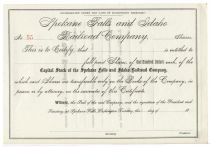 INCORPORATED UNDER THE LAWS OF WASHINGTON TERRITORY
Spokane Falls and Idaho
No 55 Railroad Company. Shares
This is to Certify, that is entitled to
full paid Shares of one hundred dollars each of the
Capital Stock of the Spokane Falls and Idaho Railroad Company,
which said Shares are transferable only on the Books of the Company, in
person or by attorney, on the surrender of this Certificate.
Witness, the Seal of the said Company, and the signatures of the President and
Secretary, at Spokane Falls, Washington Territory, this day of 18